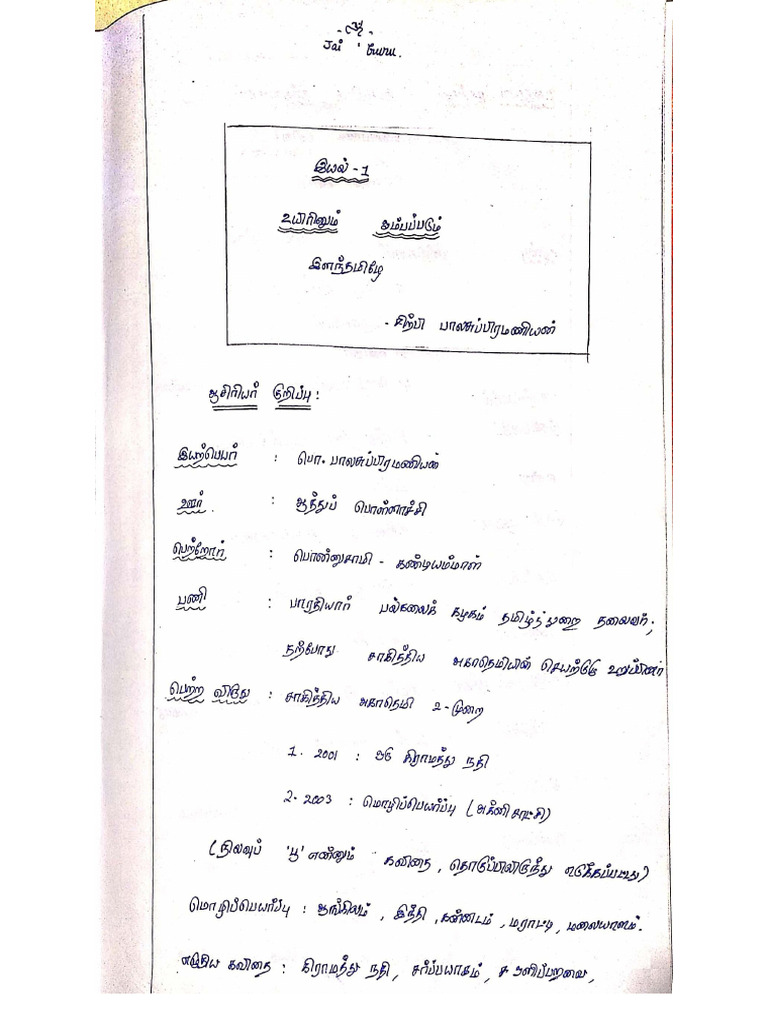 Jai Guru.
இயல் - 1
உயிரினும்
இளந்தமிழே
- சிற்பி பாலசுப்பிரமணியன்
ஆசிரியர் குறிப்பு :
இயற்பெயர் : பொ. பாலசுப்பிரமணியன்
ஊர் : ஆத்துப் பொள்ளாச்சி
பெற்றோர் : பொன்னுசாமி - கண்டியம்மாள்
பணி : பாரதியார் பல்கலைக் கழகம் தமிழ்த்துறை தலைவர்;
தற்போது சாகித்திய அகாதெமியின் செயற்குழு உறுப்பினர்
பெற்ற விருது : சாகித்திய அகாதெமி 2-முறை
1. 2001 : ஒரு கிராமத்து நதி
2. 2003 : மொழிப்பெயர்ப்பு (அக்னி சாட்சி)
(நிலவுப் 'பூ' என்னும் கவிதை, தொகுப்பிலிருந்து எடுக்கப்பட்டது)
மொழிபெயர்ப்பு : ஆங்கிலம், இந்தி, கன்னடம், மராட்டி, மலையாளம்.
எழுதிய கவிதை : கிராமத்து நதி, சர்ப்பயாகம், ஒளிப்பறவை,